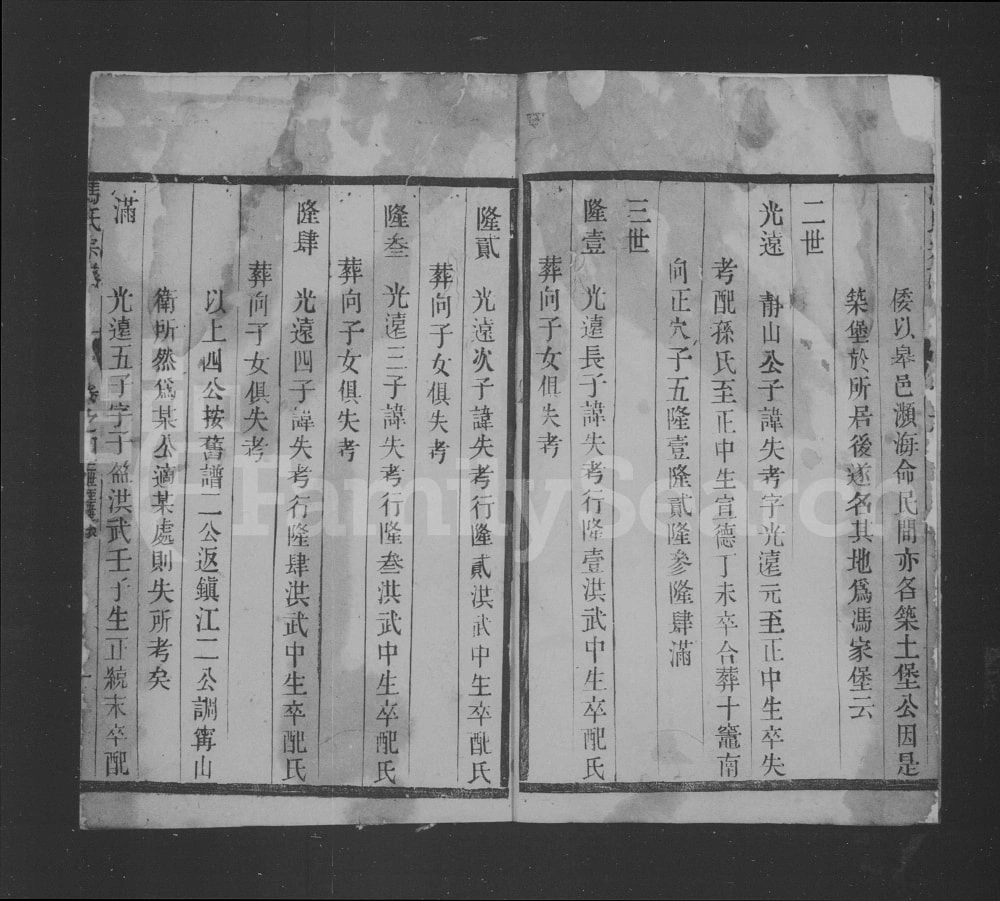 倭以皋邑瀕海命民間亦各築土堡公因是
築堡於所居後遂名其地爲馮家堡云
二世
光遠　靜山公子諱失考字光遠元至正中生卒失
考配孫氏至正中生宣德丁未卒合葬十竈南
向正穴子五隆壹隆貳隆參隆肆滿
三世
隆壹　光遠長子諱失考行隆壹洪武中生卒配氏
葬向子女俱失考
隆貳　光遠次子諱失考行隆貳洪武中生卒配氏
葬向子女俱失考
隆叁　光遠三子諱失考行隆叁洪武中生卒配氏
葬向子女俱失考
隆肆　光遠四子諱失考行隆肆洪武中生卒配氏
葬向子女俱失考
以上四公按舊譜二公返鎭江二公調甯山
衛所然爲某公適某處則失所考矣
滿　光遠五子字于盈洪武壬子生正統末卒配
馮氏宗譜
FamilySearch